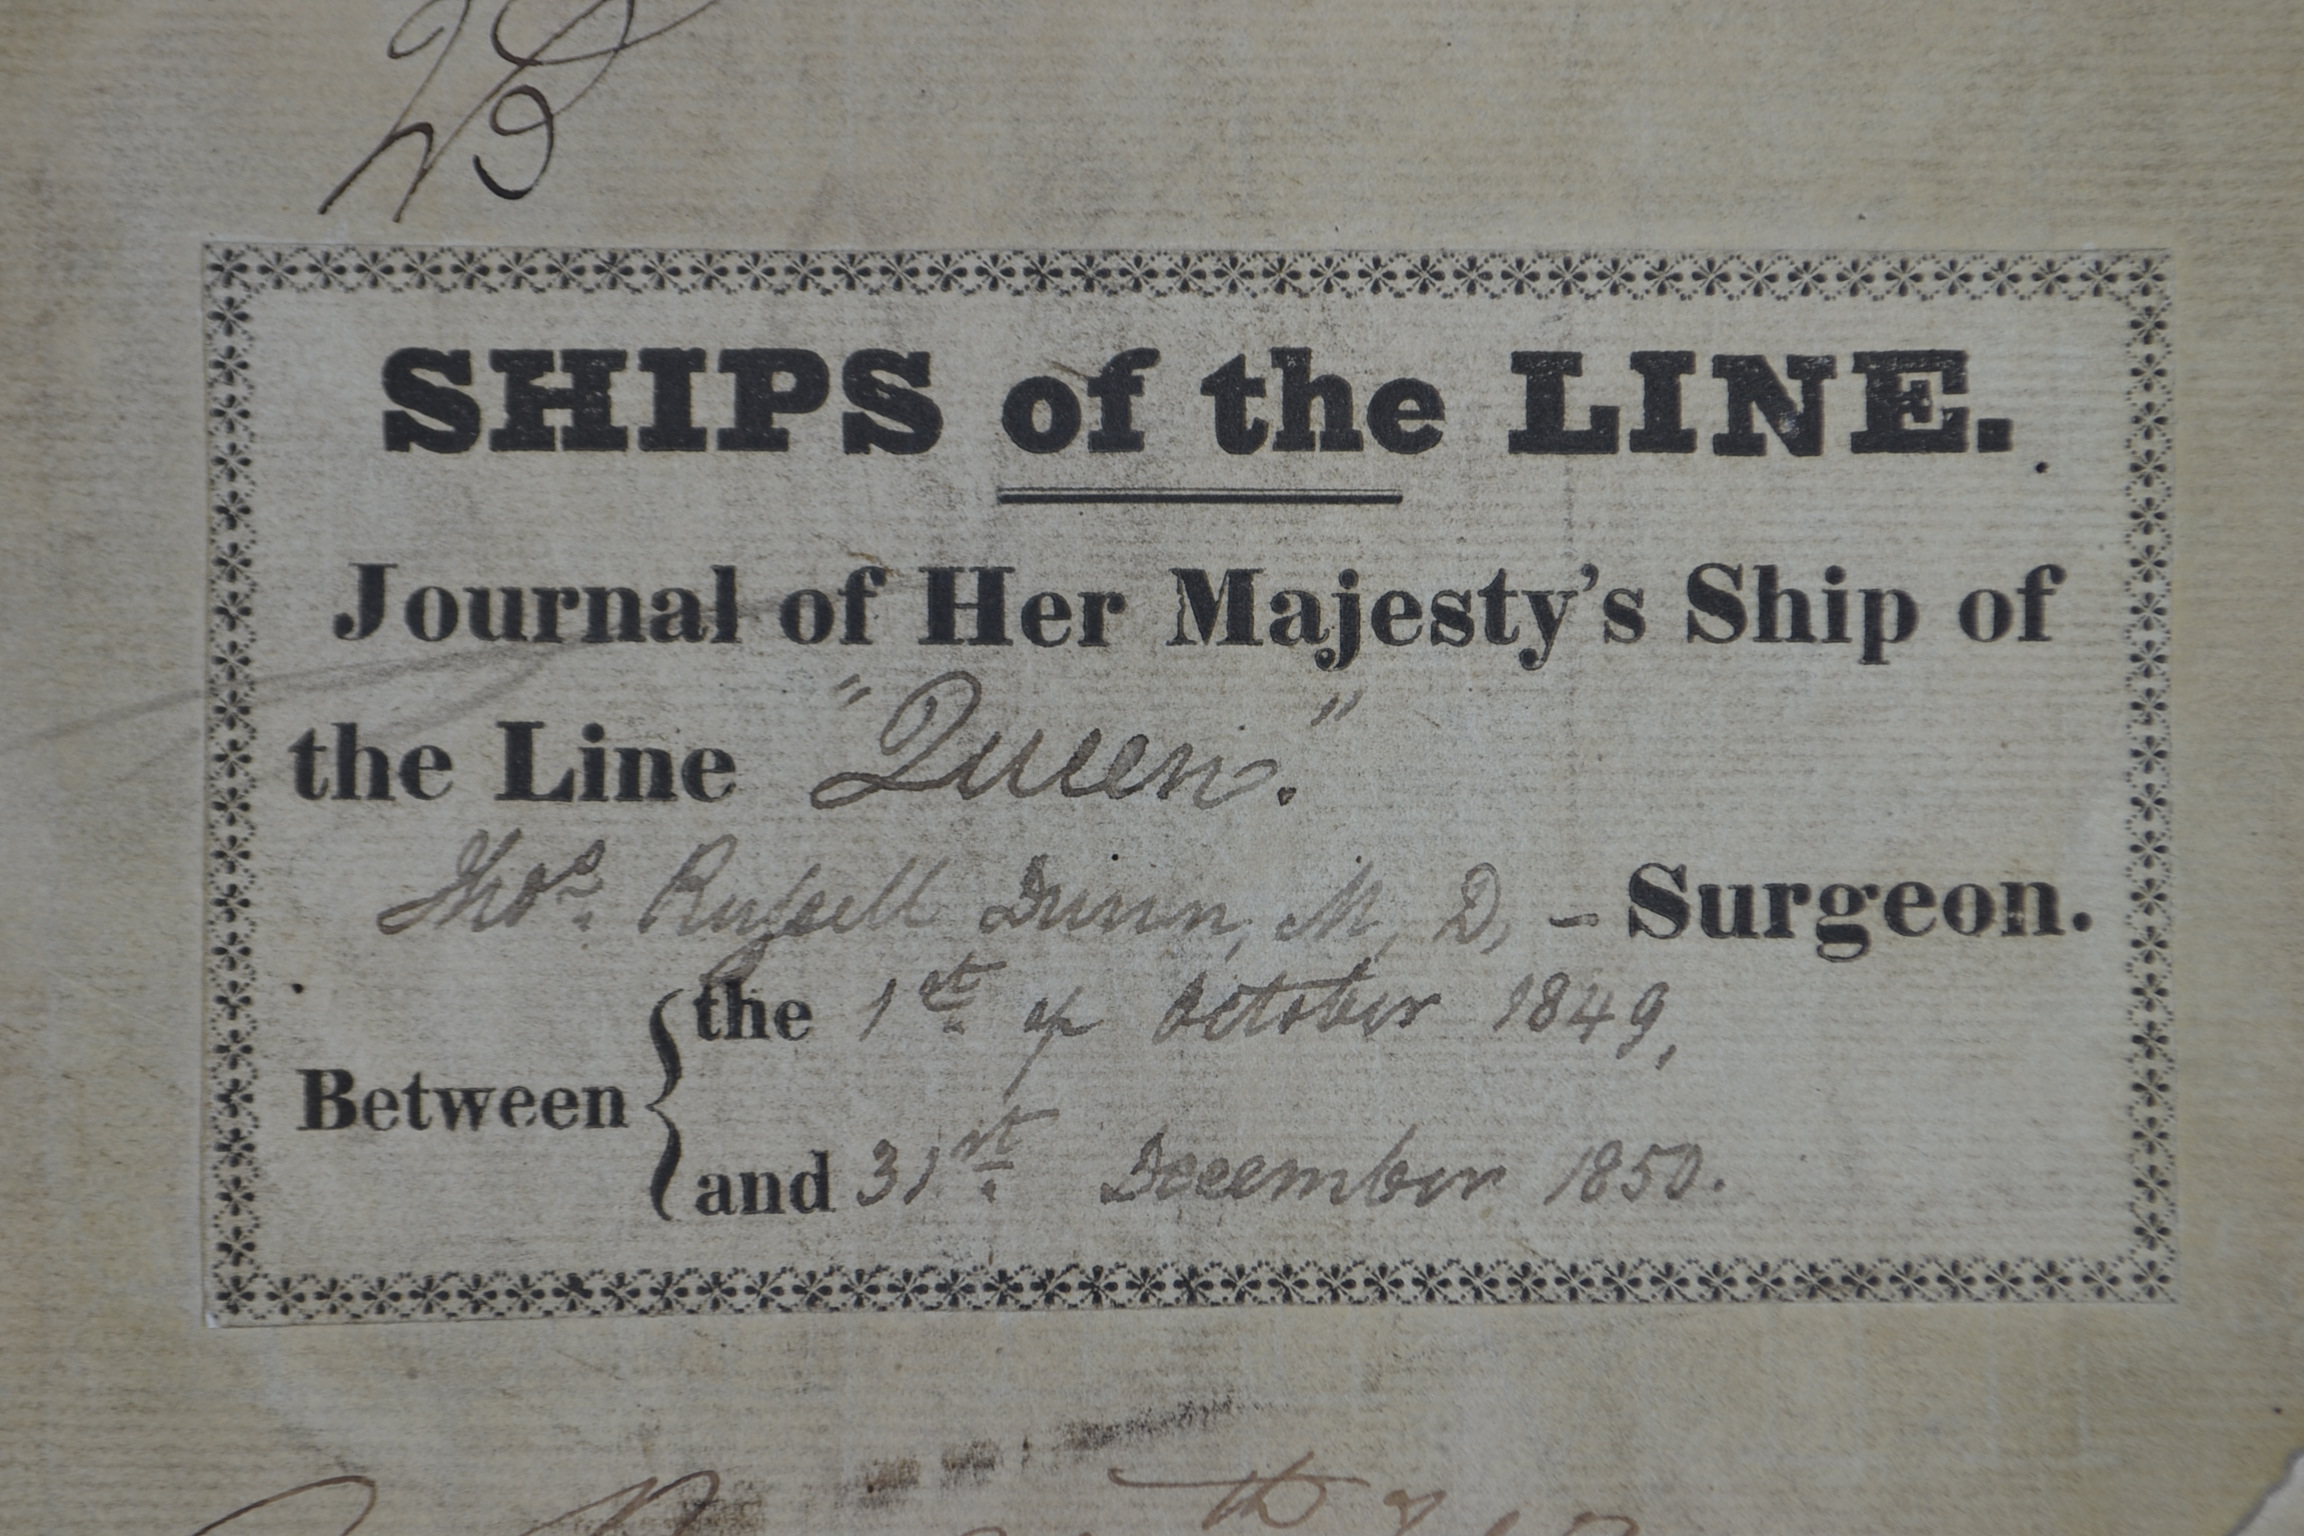 SHIPS of the LINE.
Journal of Her Majesty's Ship of
the Line "Queen."
Thos. Russell Dunn, M, D, - Surgeon.
Between { the 1st. of October 1849,
and 31st. December 1850.